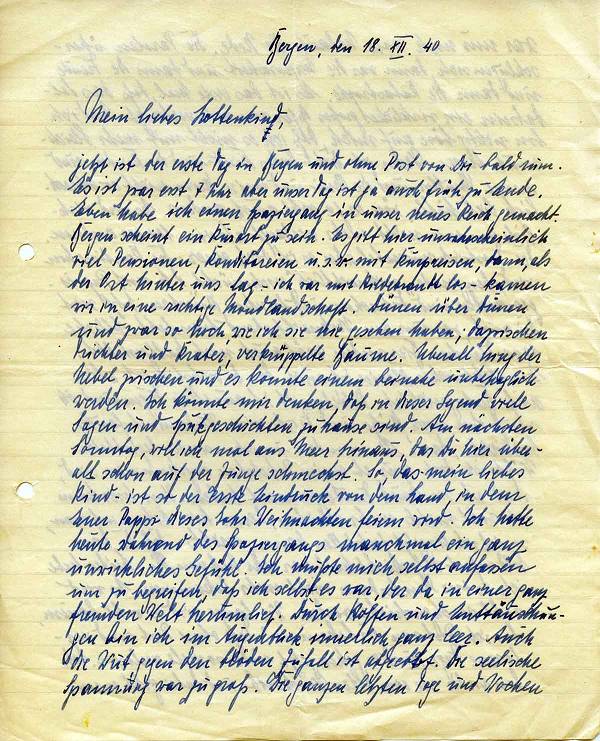 Bergen, den 18. XII. 40
Mein liebes Lottenkind,
jetzt ist der erste Tag in Bergen und ohne Post von Dir bald rum.
Es ist zwar erst 7 Uhr aber unser Tag ist ja auch früh zu Ende.
Eben habe ich einen Spaziergang in unser neues Reich gemacht.
Bergen scheint ein Kurort zu sein. Es gibt hier unwahrscheinlich
viel Pensionen, Konditoreien u.s.w. mit Kurpreisen, dann, als
der Ort hinter uns lag - ich war mit los - kamen
wir in eine richtige Mondlandschaft. Dünen über Dünen
und zwar so hoch, wie ich sie nie gesehen habe, dazwischen
Trichter und Krater, verkrüppelte Bäume. Überall hing der
Nebel zwischen und es konnte einem beinahe unbehaglich
werden. Ich könnte mir denken, daß in dieser Gegend viele
Sagen und Spukgeschichten zuhause sind. Am nächsten
Sonntag, will ich mal ans Meer hinaus, das Du hier über-
all schon auf der Zunge schmeckst. So, das mein liebes
Kind - ist so der erste Eindruck von dem Land, in dem
Euer Pappi dieses Jahr Weihnachten feiern wird. Ich hatte
heute während des Spaziergangs manchmal ein ganz
unwirkliches Gefühl. Ich mußte mich selbst anfassen
um zu begreifen, daß ich selbst es war, der da in einer ganz
fremden Welt herumlief. Durch Hoffen und Enttäuschun-
gen bin ich im Augenblick innerlich ganz leer. Auch
die Wut gegen den blöden Zufall ist abgeebbt. Die seelische
Spannung war zu groß. Die ganzen letzten Tage und Wochen